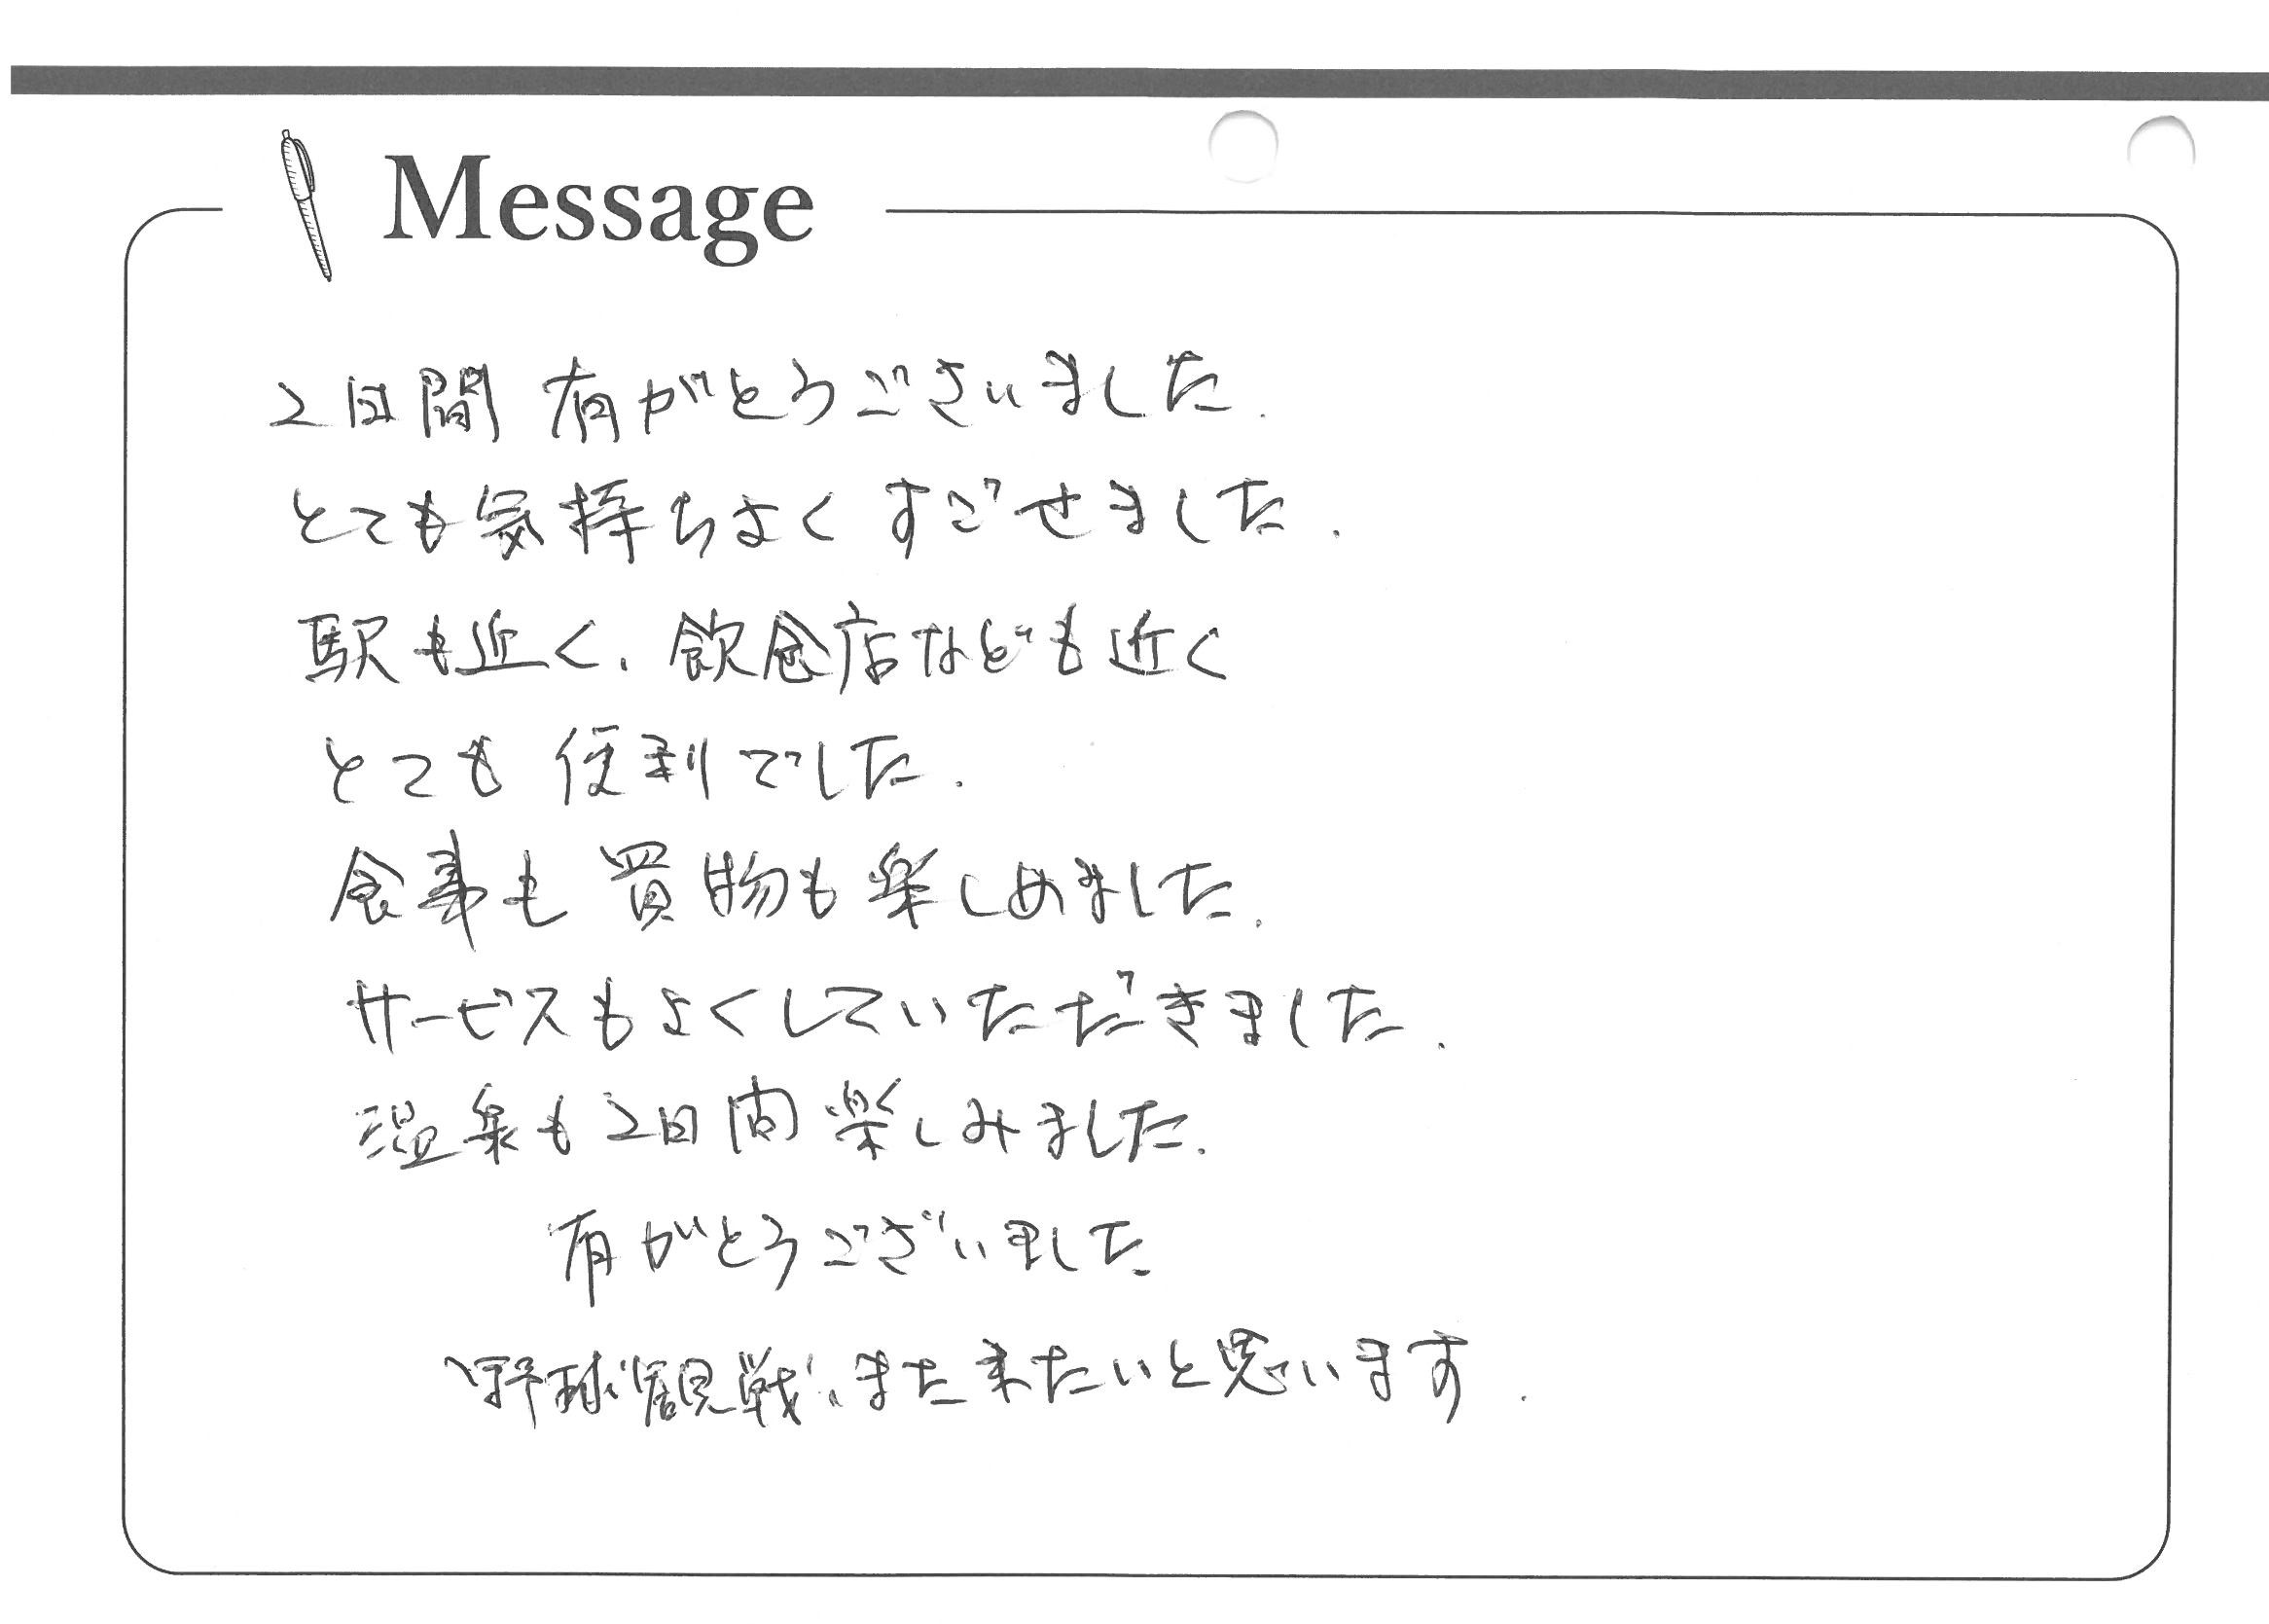 Message
2日間 有がとうございました.
とても気持ちよく すごせました.
駅も近く、飲食店なども近く
とても 便利でした.
食事も 買物も楽しめました.
サービスもよくしていただきました.
温泉も2日間 楽しみました.
有がとうございました
野球観戦、また来たいと思います.